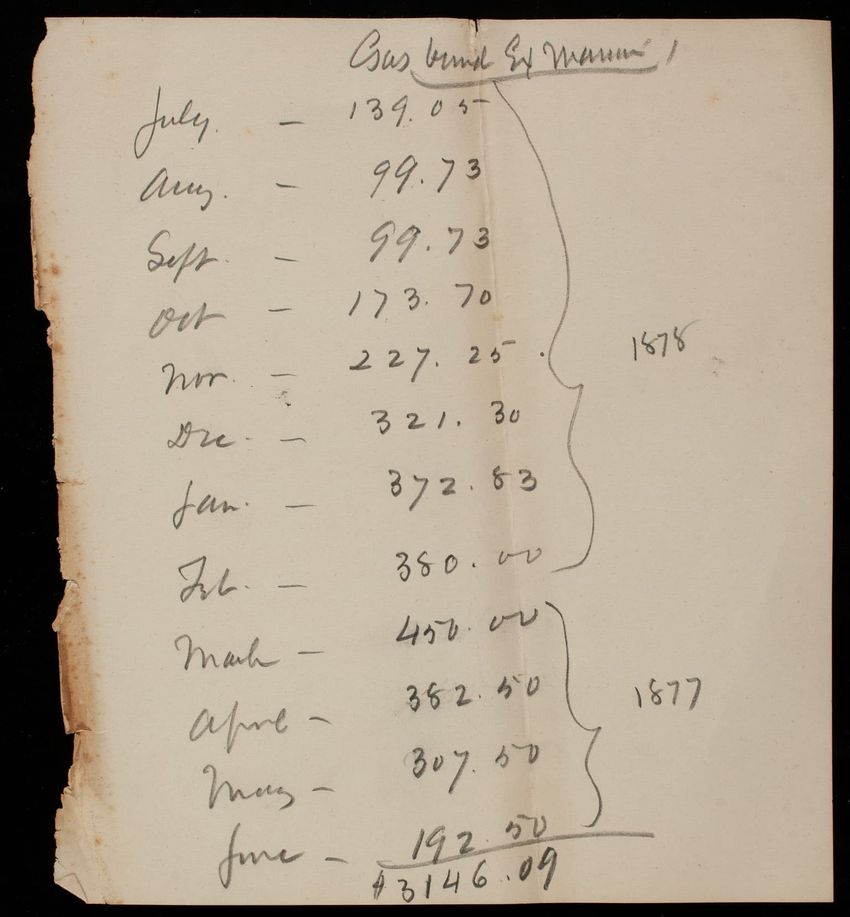 Gas burnd Ex Mansion
July. — 139.05
Aug. — 99.73
Sept. — 99.73
Oct — 173.70
Nov. — 227.25
1878
Dec. — 321.30
Jan. — 372.83
Feb. — 380.00
March — 450.00
April — 382.50
1877
May — 307.50
June — 192.50
$3146.09